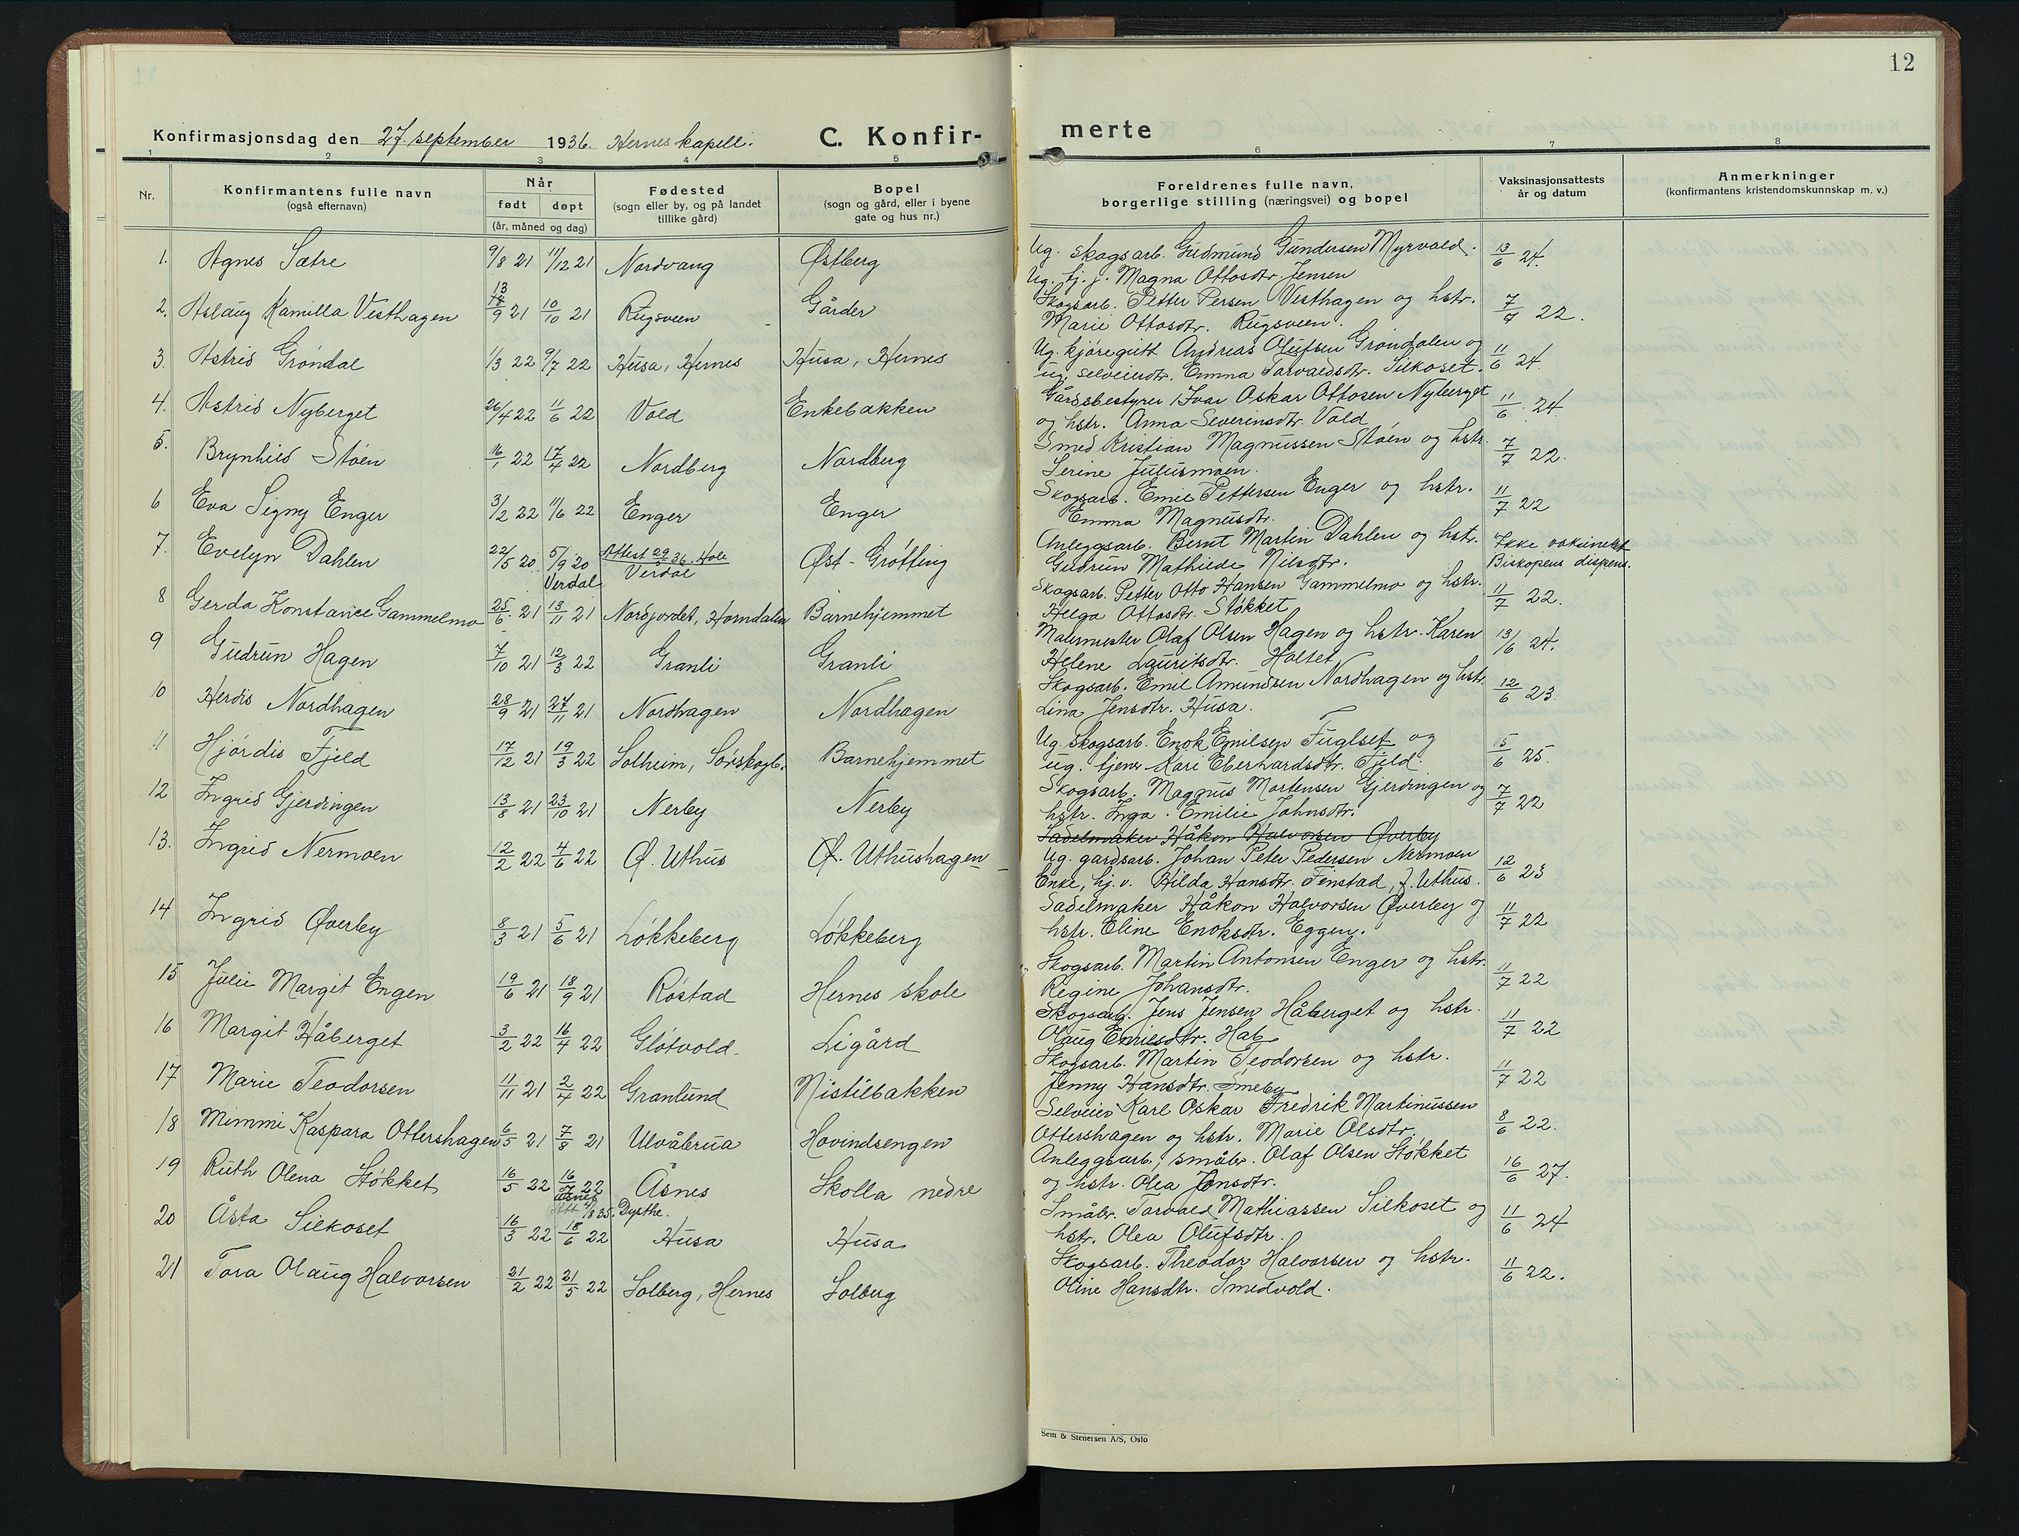 12
Konfirmasjonsdag den 27. september 1936. Hernes kapell. C. Konfir-
merte
1 2 3 4 5 6 7 8
Nr. Konfirmantens fulle navn (også efternavn) Når født døpt (år, måned og dag) Fødested (sogn eller by, og på landet tillike gård) Bopel (sogn og gård, eller i byene gate og hus nr.) Foreldrenes fulle navn, borgerlige stilling (næringsvei) og bopel Vaksinasjonsattests år og datum Anmerkninger (konfirmantens kristendomskunnskap m. v.)
1. Agnes Sætre 9/8 21 11/12 21 Nordvang Østberg Ug. skogsarb. Gudmund Gundersen Myrvold. 13/6 24.
Ug. tj. j. Magna Ottosdtr. Jensen
2. Aslaug Kamilla Vesthagen 13/9 21 10/10 21 Rugsveen Gårder Skogsarb. Petter Persen Vesthagen og hstr. 7/7 22.
Marie Ottosdtr. Rugsveen.
3. Astrid Grøndal 1/3 22 9/7 22 Husa, Hernes Husa, Hernes Ug. kjøregutt Andreas Olufsen Grøndalen og 11/6 24.
ug. selveierdtr. Emma Torvaldsdtr. Silkoset.
4. Astrid Nyberget 26/4 22 11/6 22 Vold Enkebakken Gårdsbestyrer Ivar Oskar Ottosen Nyberget 11/6 24.
og hstr. Anna Severinsdtr. Vold
5. Brynhild Støen 16/1 22 17/4 22 Nordberg Nordberg Smed Kristian Magnussen Støen og hstr. 7/7 22.
Serine Julusmoen.
6 Eva Signy Enger 3/2 22 11/6 22 Enger Enger Skogsarb. Emil Pettersen Enger og hstr. 11/7 22
Emma Magnusdtr.
7. Evelyn Dahlen 22/5 20 5/9 20 Verdal Attest 29/9 36. Hole Verdal Øst-Grøtting Anleggsarb. Bernt Martin Dahlen og hstr. Ikke vaksinert
Gudrun Mathilde Nilsdtr. Biskopens dispens.
8 Gerda Konstance Gammelmo 25/6 21 13/11 21 Nordjordet, Horndalen Barnehjemmet Skogsarb. Petter Otto Hansen Gammelmo og hstr. 11/7 22.
Helga Ottosdtr. Støkket
9 Gudrun Hagen 7/10 21 12/3 22 Granli Granli Malermester Olaf Olsen Hagen og hstr. Karen 13/6 24.
Helene Lauritsdtr. Holtet
10 Herdis Nordhagen 28/9 21 27/11 21 Nordhagen Nordhagen Skogsarb. Emil Amundsen Nordhagen og hstr. 12/6 23.
Lina Jensdtr. Husa.
11 Hjørdis Fjeld 17/12 21 19/3 22 Solheim, Sørskogb. Barnehjemmet Ug. skogsarb. Enok Emilsen Fuglset og 15/6 25.
ug. tjener Kari Eberhardsdtr. Fjeld.
12 Ingrid Gjerdingen 13/8 21 23/10 21 Nerby Nerby Skogsarb. Magnus Mortensen Gjerdingen og 7/7 22
hstr. Inga Emilie Johnsdtr.
Sadelmaker Håkon Halvorsen Øverby
13. Ingrid Nermoen 12/2 22 4/6 22 Ø. Uthus Ø. Uthushagen Ug. gardsarb. Johan Peter Pedersen Nermoen 12/6 23
Enke, hj. v. Hilda Hansdtr. Finstad, f. Uthus.
14 Ingrid Øverby 8/3 21 5/6 21 Løkkeberg Løkkeberg Sadelmaker Håkon Halvorsen Øverby og 11/7 22
hstr. Eline Enoksdtr. Eggen.
15 Julie Margit Engen 19/6 21 18/9 21 Røstad Hernes skole Skogsarb. Martin Antonsen Enger og hstr. 11/7 22
Regine Johansdtr.
16 Margit Håberget 3/2 22 16/4 22 Gløtvold Ligård Skogsarb. Jens Jensen Håberget og hstr. 11/7 22
Olaug Emilsdtr. Hab
17 Marie Teodorsen 11/11 21 2/4 22 Granlund Nistilbakken Skogsarb. Martin Teodorsen og hstr. 11/7 22
Jenny Hansdtr. Smeby
18 Mimmi Kaspara Ottershagen 6/5 21 7/8 21 Ulvåbrua Hovindsengen Selveier Karl Oskar Fredrik Martinussen 8/6 22.
Ottershagen og hstr. Marie Olsdtr.
19 Ruth Olena Støkket 16/5 22 16/7 22 Åsnes Skolla nedre Anleggsarb., småbr. Olaf Olsen Støkket 16/6 27.
Att. 35. Dysthe. og hstr. Olea Jonsdtr.
20 Åsta Silkoset 16/3 22 18/6 22 Husa Husa Småbr. Torvald Mathiassen Silkoset og 11/6 24
hstr. Olea Olufsdtr.
21 Tora Olaug Halvorsen 21/2 22 21/5 22 Solberg, Hernes Solberg Skogsarb. Theodor Halvorsen og hstr. 11/6 22.
Oline Hansdtr. Smedvold.
Sem & Stenersen A/S, Oslo